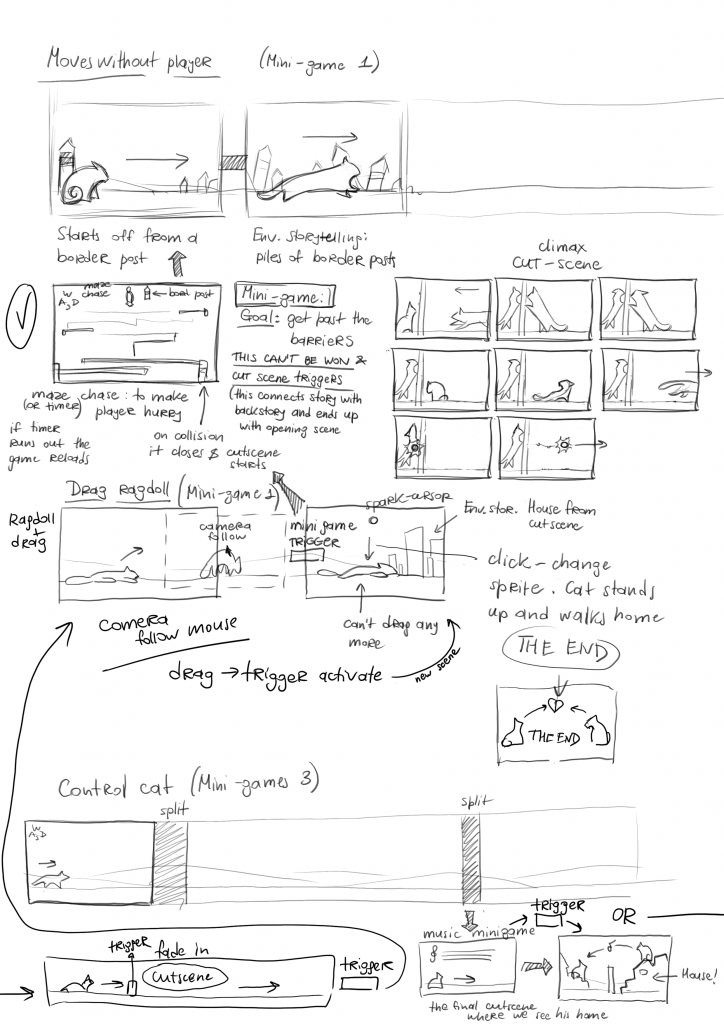 Moves without player (Mini-game 1)
Starts off from a
border post
Env. storytelling:
piles of border posts
climax
CUT-SCENE
W
A S D
maze
chase
← bord post
Mini-game:
Goal: get past the
barriers
THIS CAN'T BE WON &
CUT SCENE TRIGGERS
(this connects story with
backstory and ends up
with opening scene
maze chase: to make
(or timer) player hurry
if timer
runs out the
game reloads
on collision
it closes & cutscene
starts
Drag Ragdoll (Mini-game 2)
Ragdoll
+
drag
camera
follow
mini game
TRIGGER
spark-cursor
Env. stor. House from
cutscene
click-change
sprite. Cat stands
up and walks home
can't drag any
more
camera
follow mouse
drag → trigger activate
new scene
THE END
THE END
Control cat (Mini-games 3)
split
split
W
A S D
trigger
OR
music minigame
House!
the final cutscene
where we see his home
trigger fade in
cutscene
trigger